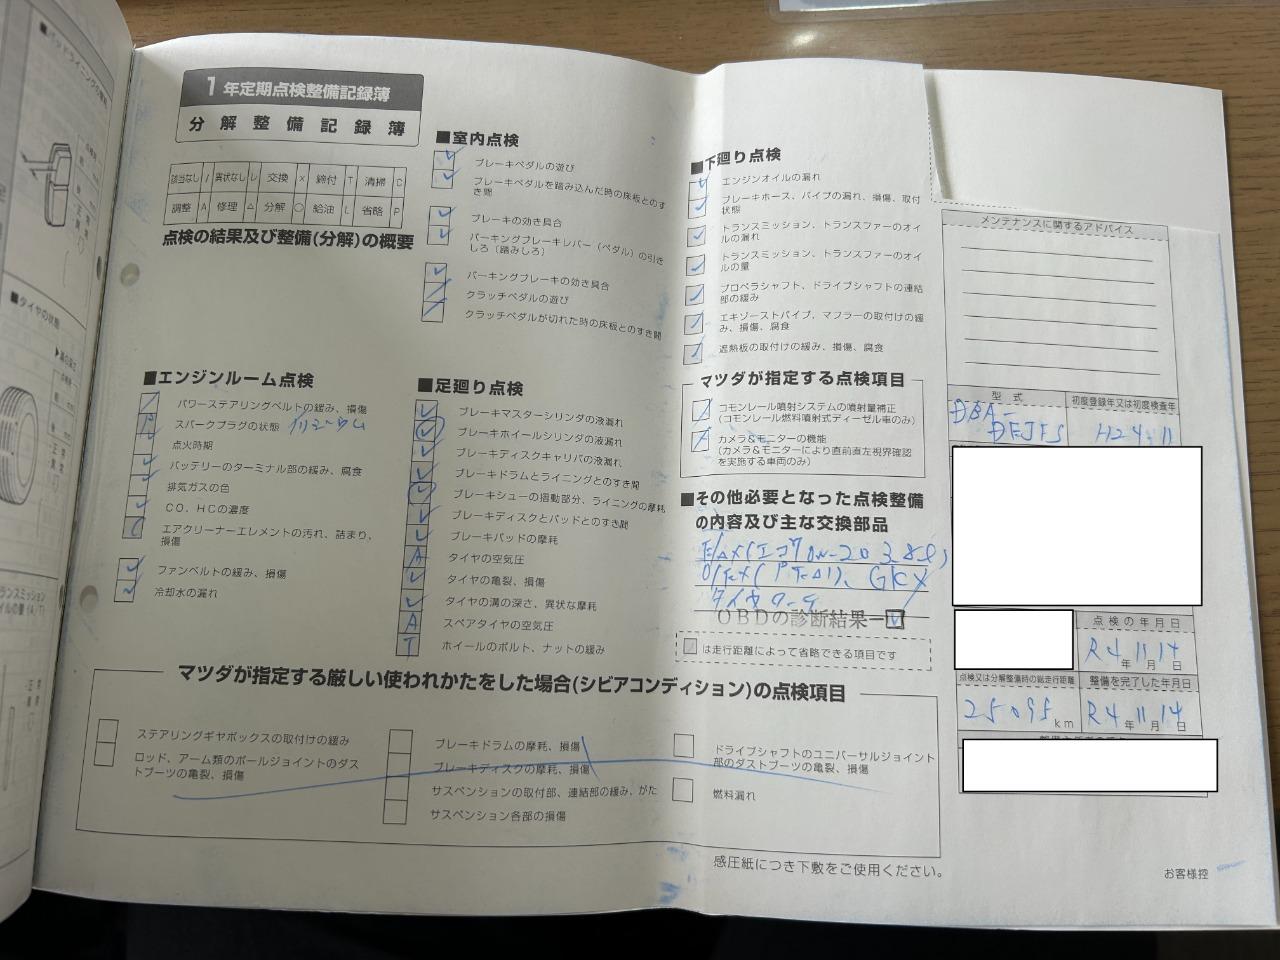 1年定期点検整備記録簿
分解整備記録簿
該当なし / 異状なし レ 交換 × 締付 T 清掃 C
調整 A 修理 △ 分解 ○ 給油 L 省略 P
点検の結果及び整備(分解)の概要
■エンジンルーム点検
パワーステアリングベルトの緩み、損傷
スパークプラグの状態 イリジウム
点火時期
バッテリーのターミナル部の緩み、腐食
排気ガスの色
CO、HCの濃度
エアクリーナーエレメントの汚れ、詰まり、
損傷
ファンベルトの緩み、損傷
冷却水の漏れ
■室内点検
ブレーキペダルの遊び
ブレーキペダルを踏み込んだ時の床板とのす
き間
ブレーキの効き具合
パーキングブレーキレバー(ペダル)の引き
しろ(踏みしろ)
パーキングブレーキの効き具合
クラッチペダルの遊び
クラッチペダルが切れた時の床板とのすき間
■足廻り点検
ブレーキマスターシリンダの液漏れ
ブレーキホイールシリンダの液漏れ
ブレーキディスクキャリパの液漏れ
ブレーキドラムとライニングとのすき間
ブレーキシューの摺動部分、ライニングの摩耗
ブレーキディスクとパッドとのすき間
ブレーキパッドの摩耗
A タイヤの空気圧
タイヤの亀裂、損傷
タイヤの溝の深さ、異状な摩耗
A スペアタイヤの空気圧
T ホイールのボルト、ナットの緩み
■下廻り点検
エンジンオイルの漏れ
ブレーキホース、パイプの漏れ、損傷、取付
状態
トランスミッション、トランスファーのオイ
ルの漏れ
トランスミッション、トランスファーのオイ
ルの量
プロペラシャフト、ドライブシャフトの連結
部の緩み
エキゾーストパイプ、マフラーの取付けの緩
み、損傷、腐食
遮熱板の取付けの緩み、損傷、腐食
マツダが指定する点検項目
コモンレール噴射システムの噴射量補正
(コモンレール燃料噴射式ディーゼル車のみ)
カメラ&モニターの機能
(カメラ&モニターにより直前直左視界確認
を実施する車両のみ)
■その他必要となった点検整備
の内容及び主な交換部品
OBDの診断結果ー
は走行距離によって省略できる項目です
メンテナンスに関するアドバイス
型式 初度登録年又は初度検査年
DBA-
DEJFS H24.11
点検の年月日
R4年11月14日
点検又は分解整備時の総走行距離 整備を完了した年月日
25095km R4年11月14日
マツダが指定する厳しい使われかたをした場合(シビアコンディション)の点検項目
ステアリングギヤボックスの取付けの緩み
ロッド、アーム類のボールジョイントのダス
トブーツの亀裂、損傷
ブレーキドラムの摩耗、損傷
ブレーキディスクの摩耗、損傷
サスペンションの取付部、連結部の緩み、がた
サスペンション各部の損傷
ドライブシャフトのユニバーサルジョイント
部のダストブーツの亀裂、損傷
燃料漏れ
感圧紙につき下敷をご使用ください。
お客様控